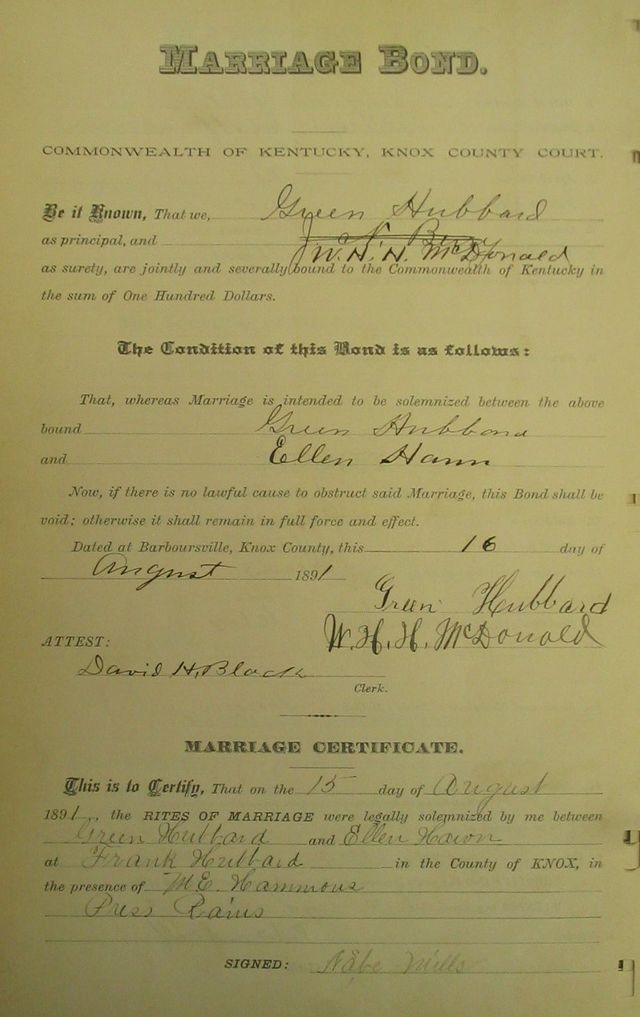 MARRIAGE BOND.
COMMONWEALTH OF KENTUCKY, KNOX COUNTY COURT.
Be it Known, That we, Green Hubbard
as principal, and W. H. H. McDonald
as surety, are jointly and severally bound to the Commonwealth of Kentucky in
the sum of One Hundred Dollars.
The Condition of this Bond is as follows:
That, whereas Marriage is intended to be solemnized between the above
bound Green Hubbard
and Ellen Hamn
Now, if there is no lawful cause to obstruct said Marriage, this Bond shall be
void; otherwise it shall remain in full force and effect.
Dated at Barboursville, Knox County, this 16 day of
August 1891
Green Hubbard
W. H. H. McDonald
ATTEST:
David H. Black
Clerk.
MARRIAGE CERTIFICATE.
This is to Certify, That on the 15 day of August
1891, the RITES OF MARRIAGE were legally solemnized by me between
Green Hubbard and Ellen
at Frank Hubbard in the County of KNOX, in
the presence of M E Hammons
Press Rains
SIGNED: Mills